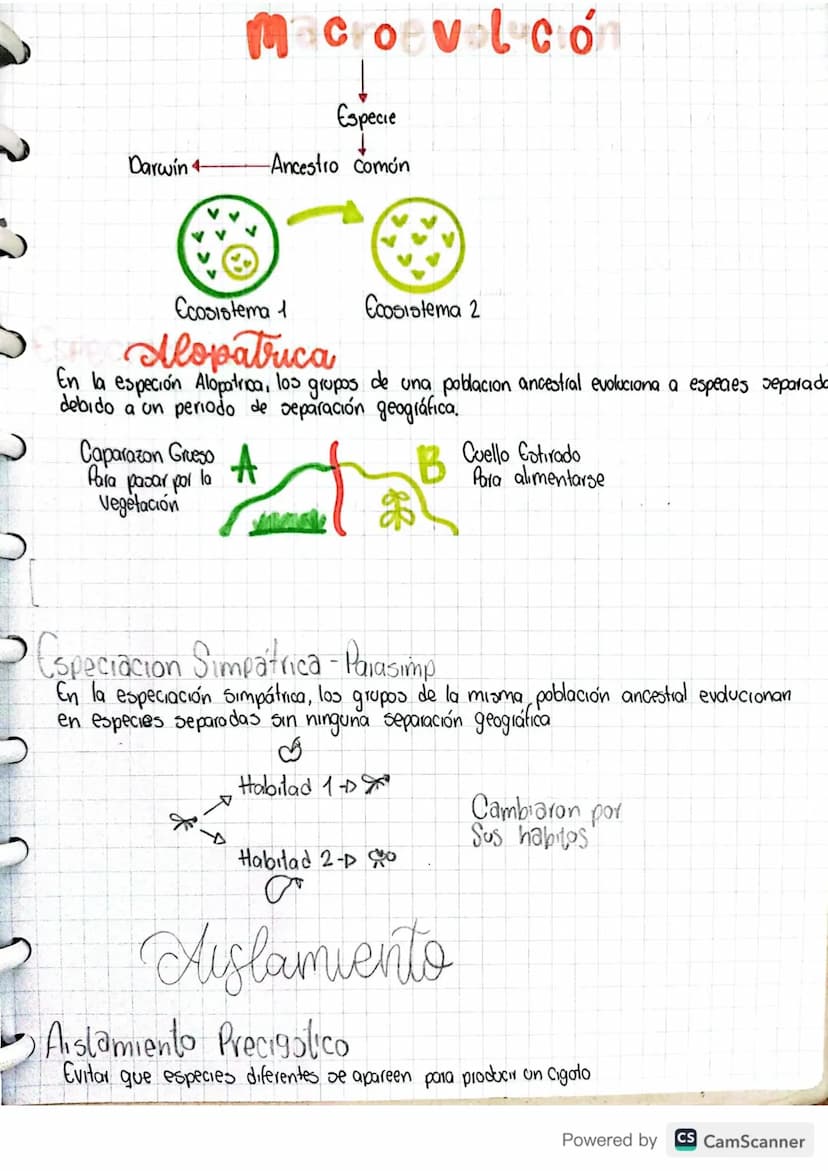 Macroevolución
Especie
Darwin Ancestro común
Ecosistema 1 Ecosistema 2
Alopatrica
En la especión Alopatrica, los grupos de una poblacion ancestral evoluciona a especies separada
debido a un periodo de separación geográfica.
Caparazon Grueso
Para pasar por la
vegetación
A
B
Cuello Estirado
Para alimentarse
Especiacion Simpátrica - Parasimp
En la especiación simpátrica, los grupos de la misma población ancestral evolucionan
en especies separadas sin ninguna separación geográfica
Habitad 1
Habitad 2
Cambiaron por
Sus habitos
Aislamiento
Aislamiento Precigotico
Evitar que especies diferentes se apareen para producir un cigoto
Powered by CS CamScanner